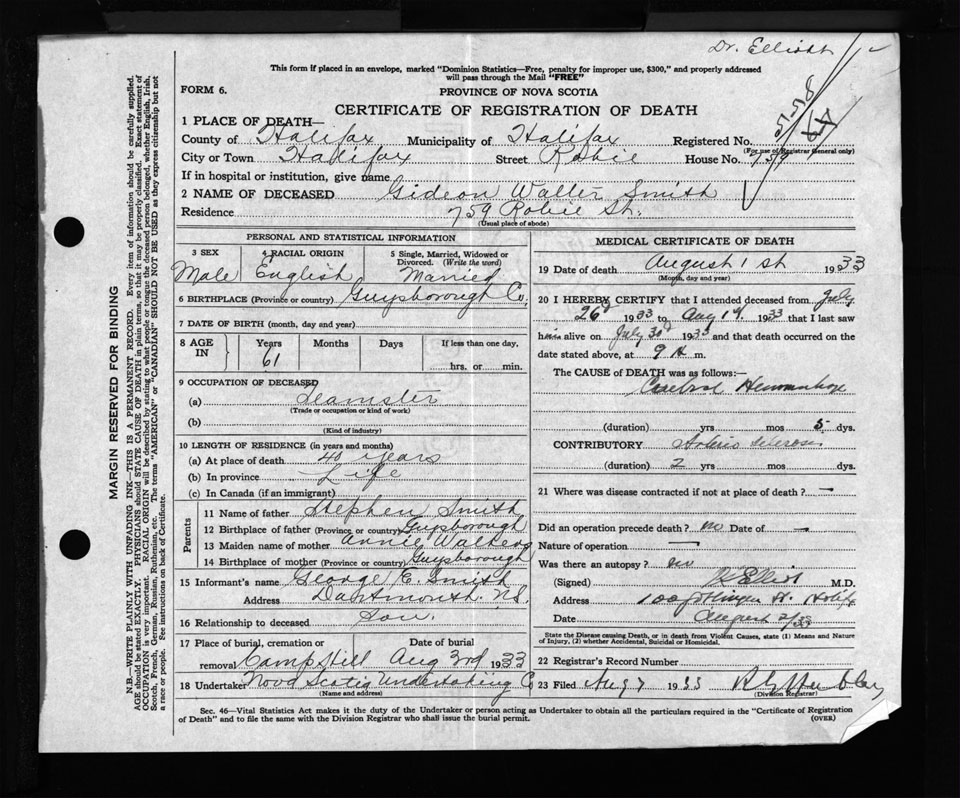 Dr. Elliott
This form if placed in an envelope, marked "Dominion Statistics—Free, penalty for improper use, $300," and properly addressed
will pass through the Mail "FREE"
FORM 6.
PROVINCE OF NOVA SCOTIA
CERTIFICATE OF REGISTRATION OF DEATH
1 PLACE OF DEATH—
County of Halifax Municipality of Halifax Registered No.
(For use of Registrar General only)
City or Town Halifax Street Robie House No. 759
If in hospital or institution, give name
2 NAME OF DECEASED Gideon Walter Smith
Residence 759 Robie St.
(Usual place of abode)
PERSONAL AND STATISTICAL INFORMATION
3 SEX 4 RACIAL ORIGIN 5 Single, Married, Widowed or Divorced. (Write the word)
Male English Married
6 BIRTHPLACE (Province or country) Guysborough Co.
7 DATE OF BIRTH (month, day and year)
8 AGE IN Years Months Days If less than one day,
61 hrs. or min.
9 OCCUPATION OF DECEASED
(a) Teamster
(Trade or occupation or kind of work)
(b)
(Kind of industry)
10 LENGTH OF RESIDENCE (in years and months)
(a) At place of death 40 years
(b) In province Life
(c) In Canada (if an immigrant)
Parents
11 Name of father Stephen Smith
12 Birthplace of father (Province or country) Guysborough
13 Maiden name of mother Annie Walters
14 Birthplace of mother (Province or country) Guysborough
15 Informant's name George E. Smith
Address Dartmouth N.S.
16 Relationship to deceased Son
17 Place of burial, cremation or Date of burial
removal Camp Hill Aug 3rd 1933
18 Undertaker Nova Scotia Undertaking Co
(Name and address)
MEDICAL CERTIFICATE OF DEATH
19 Date of death August 1st 1933
(Month, day and year)
20 I HEREBY CERTIFY that I attended deceased from July
26 1933 to Aug 1 1933 that I last saw
him alive on July 1933 and that death occurred on the
date stated above, at 9 m.
The CAUSE of DEATH was as follows:—
Cerebral Hemorrhage
(duration) yrs mos 5 dys.
CONTRIBUTORY Arterio Sclerosis
(duration) 2 yrs mos dys.
21 Where was disease contracted if not at place of death? —
Did an operation precede death? no Date of —
Nature of operation —
Was there an autopsy? no
(Signed) Elliott M.D.
Address Halifax
Date August 2/33
State the Disease causing Death, or in death from Violent Causes, state (1) Means and Nature of Injury, (2) whether Accidental, Suicidal or Homicidal.
22 Registrar's Record Number
23 Filed Aug 7 1933
(Division Registrar)
Sec. 46—Vital Statistics Act makes it the duty of the Undertaker or person acting as Undertaker to obtain all the particulars required in the "Certificate of Registration
of Death" and to file the same with the Division Registrar who shall issue the burial permit. (OVER)
MARGIN RESERVED FOR BINDING
N.B.—WRITE PLAINLY WITH UNFADING INK—THIS IS A PERMANENT RECORD. Every item of information should be carefully supplied.
AGE should be stated EXACTLY. PHYSICIANS should STATE CAUSE OF DEATH in plain terms, so that it may be properly classified. Exact statement of
OCCUPATION is very important. RACIAL ORIGIN will be described by stating to what people or tongue the deceased person belonged, whether English, Irish,
Scotch, French, German, Russian, Ruthenian, etc. The terms "AMERICAN" or "CANADIAN" SHOULD NOT BE USED as they express citizenship but not
a race or people. See instructions on back of Certificate.